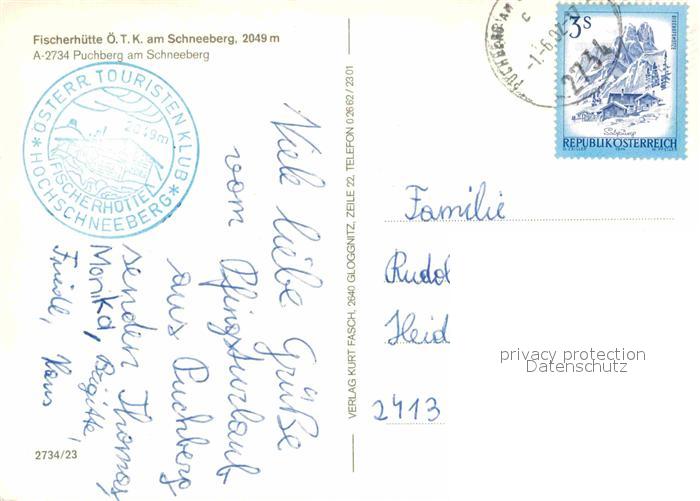 Fischerhütte Ö. T. K. am Schneeberg, 2049 m
A-2734 Puchberg am Schneeberg
ÖSTERR. TOURISTEN KLUB
2049m
FISCHERHÜTTE
* HOCHSCHNEEBERG *
Viele liebe Grüße
vom Pfingsturlaub
aus Puchberg
senden Thomas,
Monika, Brigitte,
Friedl, Hans
2734/23
VERLAG KURT FASCH, 2640 GLOGGNITZ, ZEILE 22, TELEFON 0 26 62 / 23 01
PUCHBERG AM
2734
3S
REPUBLIK ÖSTERREICH
Familie
Rudol
Heid
2413
privacy protection
Datenschutz